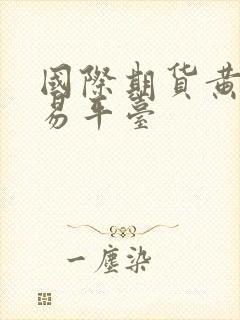 國際期貨黃
易平臺
一塵染